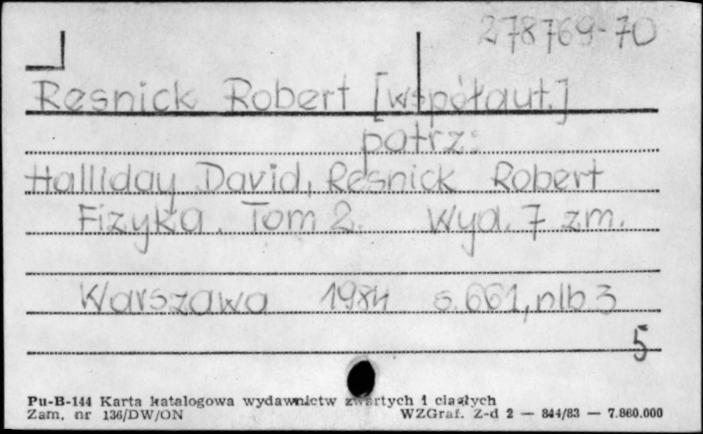 278769-70
Resnick Robert [współaut.]
patrz:
Halliday David, Resnick Robert
Fizyka. Tom 2. Wyd. 7 zm.
Warszawa 1984 s. 661, nlb 3
5
Pu-B-144 Karta katalogowa wydawnictw zwartych i ciągłych
Zam. nr 136/DW/ON WZGraf. Z-d 2 — 844/83 — 7.860.000